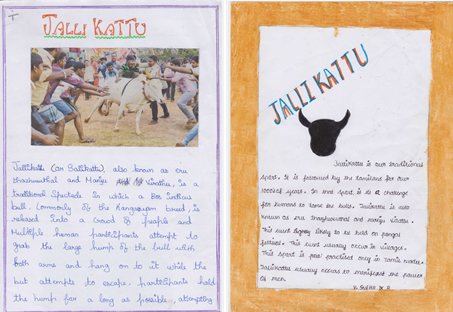 JALLI KATTU
Jallikattu (or Sallikattu), also known as eru
thazhuvuthal and Manju Virattu, is a
traditional Spectacle in which a Bos indicus
bull, Commonly of the Kangayam breed, is
released into a Crowd of people and
Multiple human participants attempt to
grab the large hump of the bull with
both arms and hang on to it while the
bull attempts to escape. participants hold
the hump for a long as possible, attempting
JALLI KATTU
Jallikattu is our traditional
Sport. It is followed by the tamilans for our
years. In that Sport is a challenge
for humans to tame the bulls. Jallikattu is also
known as eru thazhuvuthal and manju virattu.
This event likely to be held on pongal
festival. This event usually occur in villages.
This Sport is practised only in Tamil nadu.
Jallikattu usually occurs to manifest the power
of men.